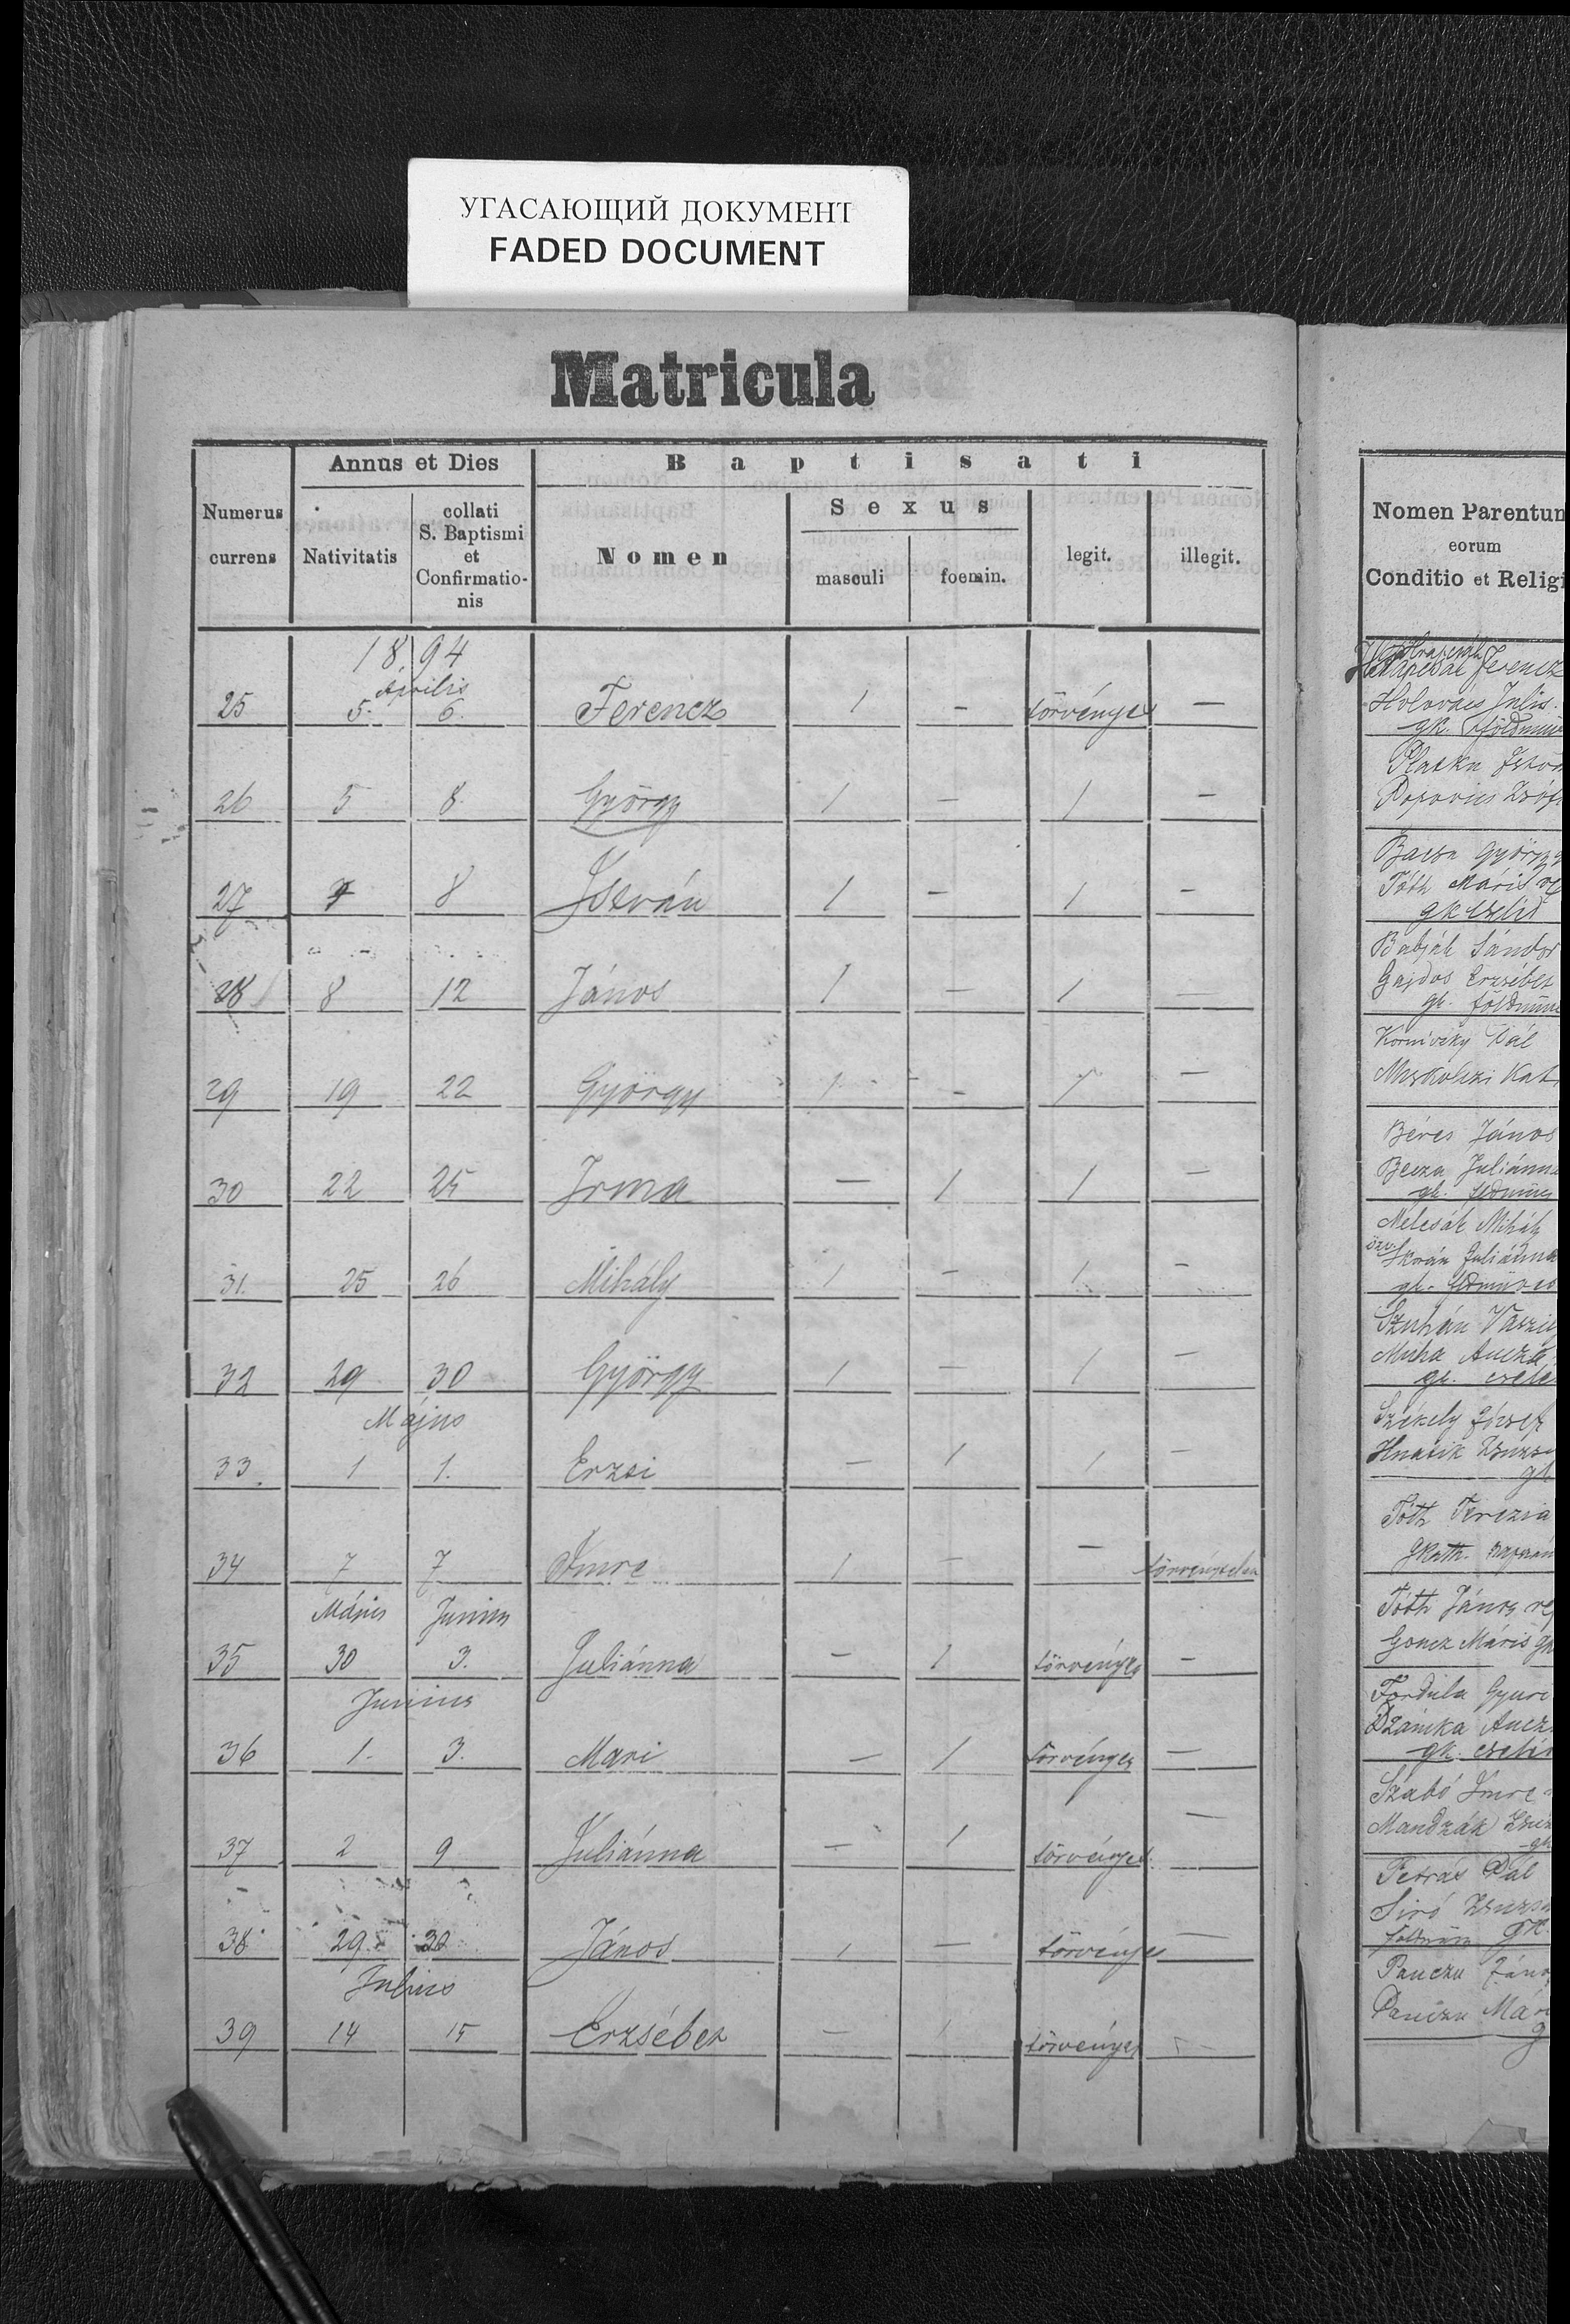 УГАСАЮЩИЙ ДОКУМЕНТ
FADED DOCUMENT
Matricula
Numerus currens
Annus et Dies
Nativitatis
collati S. Baptismi et Confirmatio-nis
Baptisati
Nomen
Sexus
masculi
foemin.
legit.
illegit.
1894
Aprilis
25 5. 6. Ferencz 1 – törvényes –
26 5 8. György 1 – 1 –
27 7 8 István 1 – 1 –
28 8 12 János 1 – 1 –
29 19 22 György 1 – 1 –
30 22 25 Irma – 1 1 –
31. 25 26 Mihály 1 – 1 –
32 29 30 György 1 – 1 –
Május
33. 1 1. Erzsi – 1 1 –
34 7 7 Imre 1 – – törvénytelen
Május Junius
35 30 3. Juliánna – 1 törvényes –
Junius
36 1. 3. Mari – 1 törvényes –
37 2 9 Juliánna – 1 törvényes –
38 29 30 János 1 – törvényes –
Julius
39 14 15 Erzsébet – 1 törvényes –
Nomen Parentum
eorum
Conditio et Religi
Ferencz
Holovács Julis.
gk. földmüv
István
Popovics Zsófi
Bacsa György
Tóth Máris
gk cseléd
Babják Sándor
Gajdos Erzsébet
gk. földmüve
Pál
Miskolczi Kat
Béres János
Juliánna
gk.
Melcsák Mihály
özv. Juliánna
gk. földmüves
Szuhán Vaszily
Muha Ancza
gk. cselé
Székely József
Hnatik Zsuzsa
gk
Tóth Terezia
Gkath. napszám
Tóth János ref
Goncz Máris gk
Fordula Gyuri
Dzámka Ancza
gk. cseléd
Szabó Imre
Mandzák Zsuz
gk
Petrás Pál
Siró Zsuzsa
földmüv gk.
Panczu János
Panczu Mári
g